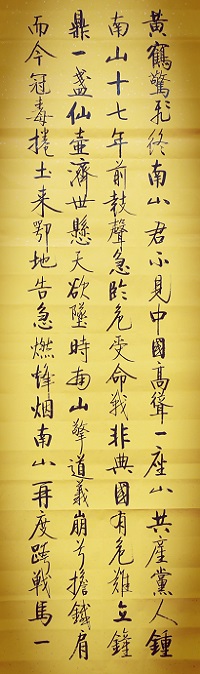 黃鶴驚飛終南山君不見中國高聳一座山共產黨人鍾
南山十七年前鼓聲急臨危受命戰非典國有危難立鐘
鼎一盞仙壺濟世懸天欲墜時南山擎道義崩兮擔鐵肩
而今冠毒捲土来鄂地告急燃烽烟南山再度跨戰馬一